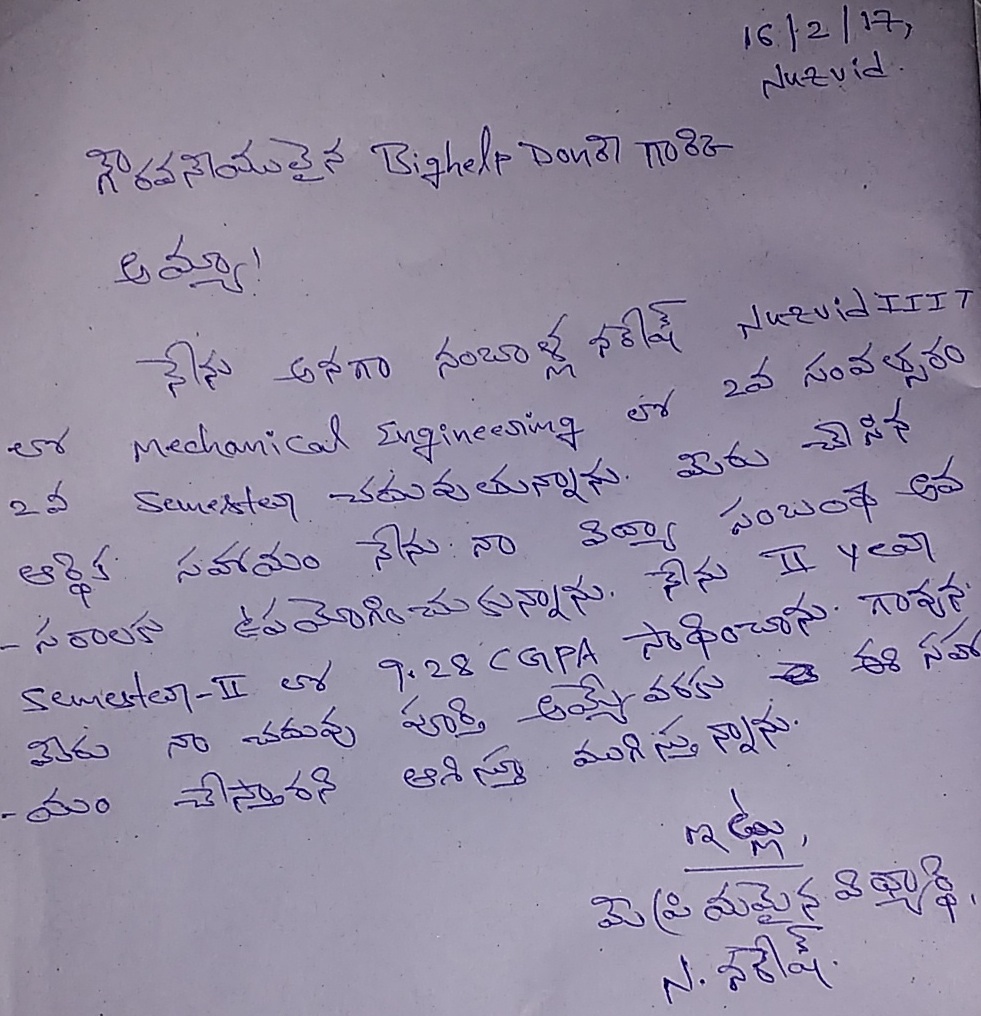 16/2/17,
Nuzvid.
గౌరవనీయులైన Bighelp Donర్ గారికి
అమ్మా!
నేను అనగా నంబాళ్ల నరేష్ Nuzvid IIIT
లో Mechanical Engineering లో 2వ సంవత్సరం
2వ Semester చదువుతున్నాను. మీరు చేసిన
ఆర్థిక సహాయం నేను నా విద్యా సంబంధ అవ
- సరాలకు ఉపయోగించుకున్నాను. నేను II year
Semester-II లో 9.28 CGPA సాధించాను. గావున
మీరు నా చదువు పూర్తి అయ్యే వరకు ఈ సహా
- యం చేస్తారని ఆశిస్తూ ముగిస్తున్నాను.
ఇట్లు,
మీ ప్రియమైన విద్యార్థి,
N. నరేష్.